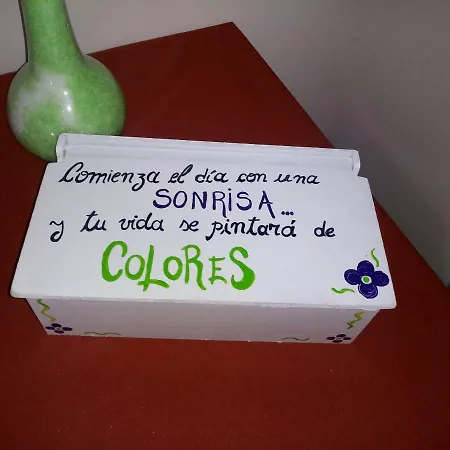 Comienza el día con una
SONRISA...
y tu vida se pintará de
COLORES